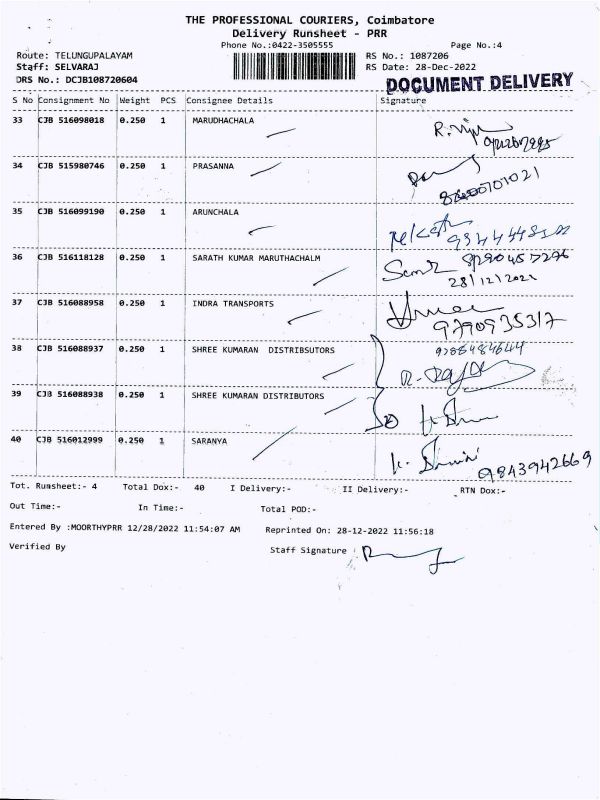 THE PROFESSIONAL COURIERS, Coimbatore
Delivery Runsheet - PRR
Phone No.:0422-3505555 Page No.:4
Route: TELUNGUPALAYAM RS No.: 1087206
Staff: SELVARAJ RS Date: 28-Dec-2022
DRS No.: DCJB108720604
DOCUMENT DELIVERY
S No Consignment No Weight PCS Consignee Details Signature
33 CJB 516098018 0.250 1 MARUDHACHALA
34 CJB 515980746 0.250 1 PRASANNA
35 CJB 516099190 0.250 1 ARUNCHALA
36 CJB 516118128 0.250 1 SARATH KUMAR MARUTHACHALM
28/12/2022
37 CJB 516088958 0.250 1 INDRA TRANSPORTS
9790935317
38 CJB 516088937 0.250 1 SHREE KUMARAN DISTRIBSUTORS
39 CJB 516088938 0.250 1 SHREE KUMARAN DISTRIBUTORS
40 CJB 516012999 0.250 1 SARANYA
9843942669
Tot. Runsheet:- 4 Total Dox:- 40 I Delivery:- II Delivery:- RTN Dox:-
Out Time:- In Time:- Total POD:-
Entered By :MOORTHYPRR 12/28/2022 11:54:07 AM Reprinted On: 28-12-2022 11:56:18
Verified By Staff Signature :